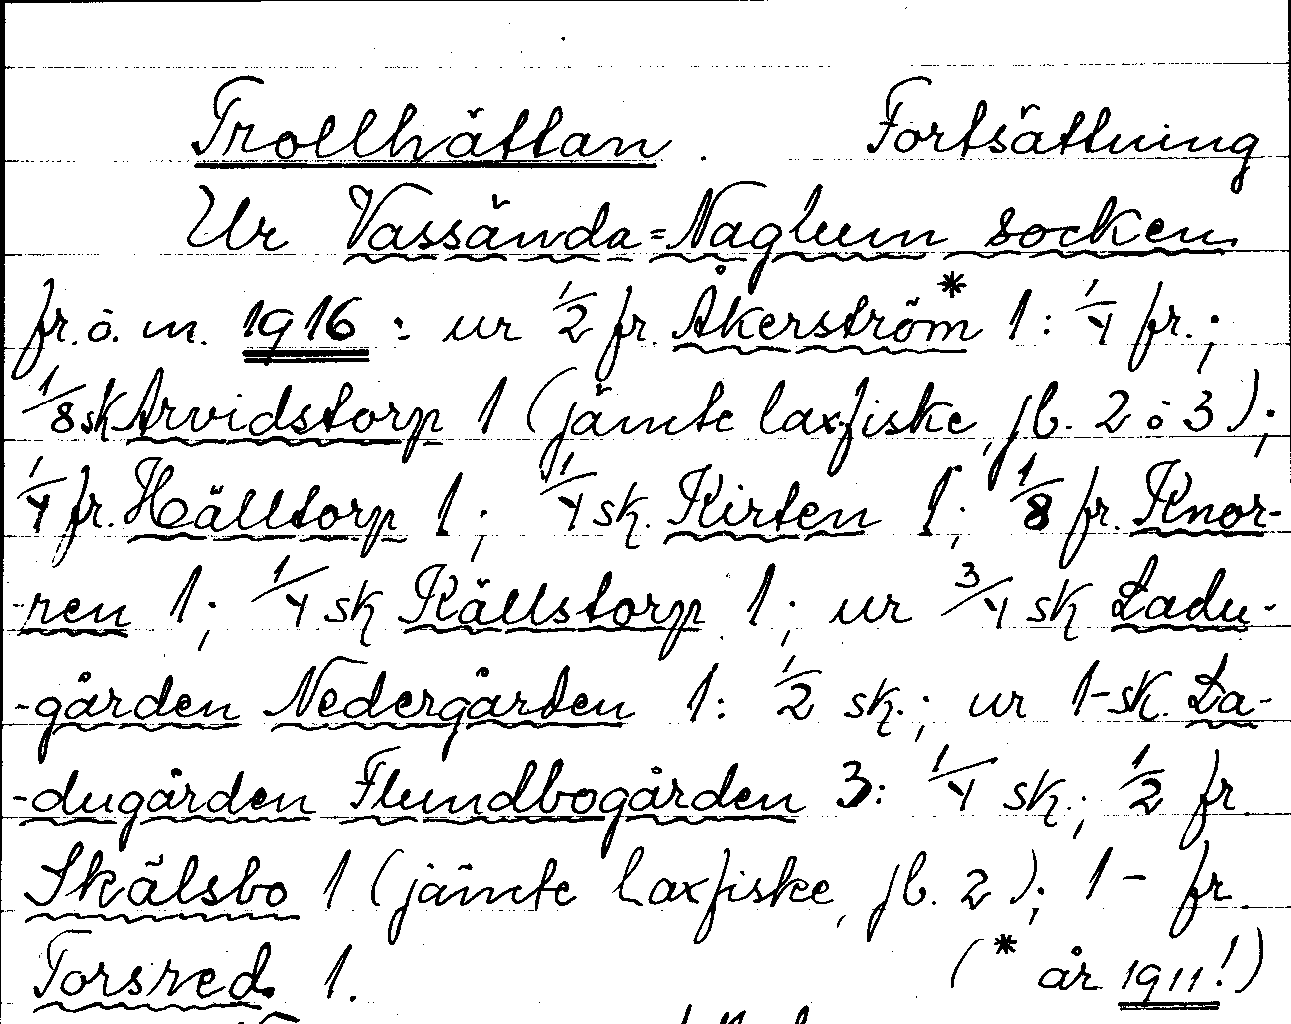 Trollhättan. Fortsättning
Ur Vassända=Naglum socken
fr.o.m. 1916: ur 1/2 fr. Åkerström* 1: 1/4 fr.;
1/8 sk Arvidstorp 1 (jämte laxfiske, jb. 2 o 3);
1/4 fr. Hälltorp 1; 1/4 sk. Kirten 1; 1/8 fr. Knor-
-ren 1; 1/4 sk Källstorp 1; ur 3/4 sk Ladu-
-gården Nedergården 1: 1/2 sk.; ur 1-sk. La-
-dugården Flundbogården 3: 1/4 sk.; 1/2 fr.
Skälsbo 1 (jämte laxfiske, jb. 2); 1- fr.
Torsred 1. (* år 1911!)